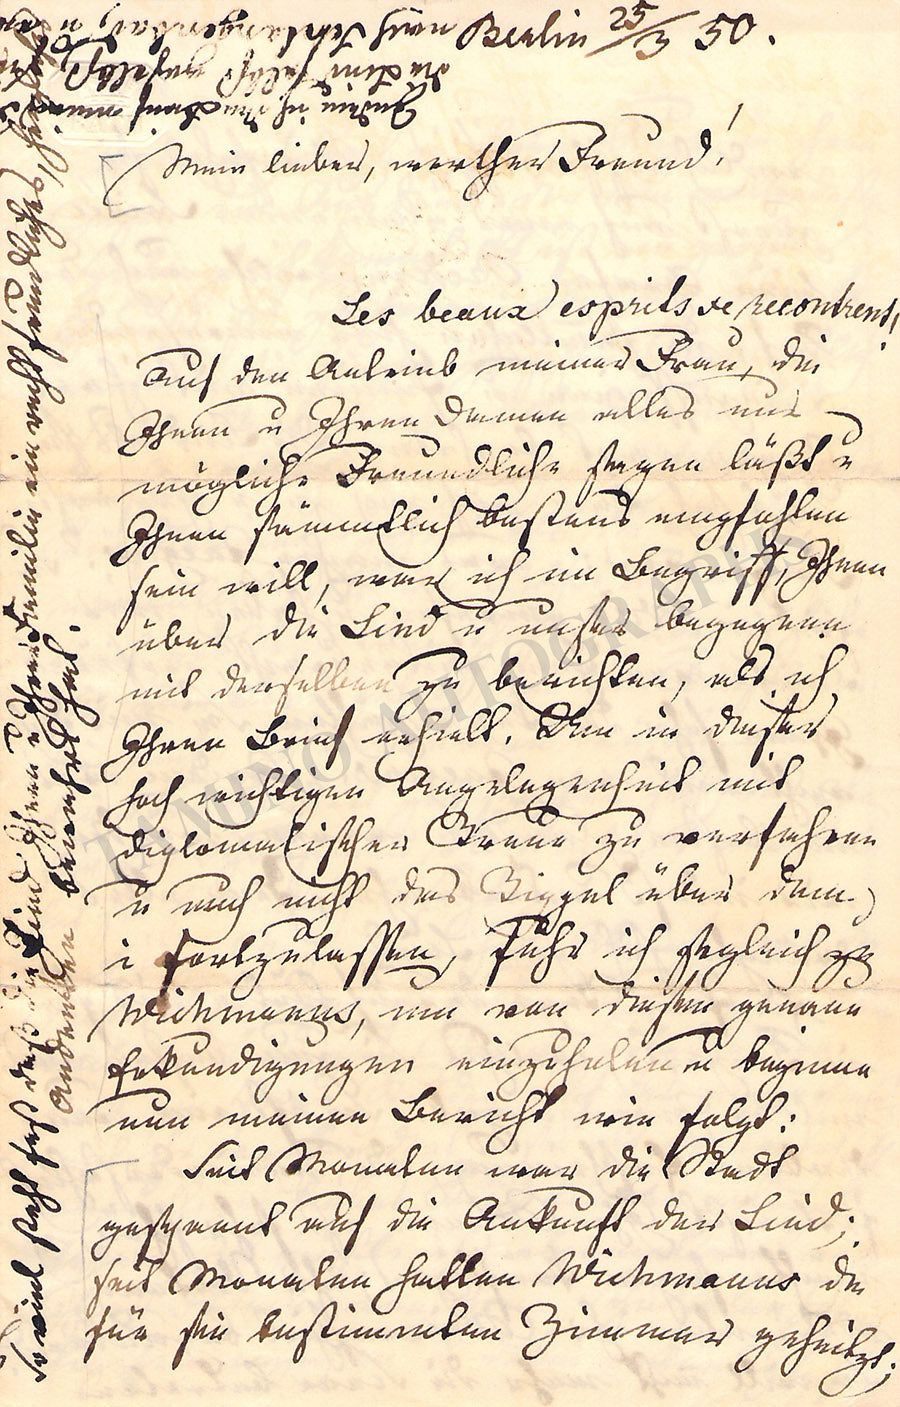 Berlin 25/3 50.
Mein lieber, werther Freund!
Les beaux esprits se recontrent,
Auf den Antrieb meiner Frau, die
Ihnen u Ihren Damen alles nur
mögliche Freundliche sagen läßt u
Ihnen sämmtlich bestens empfohlen
sein will, war ich im Begriff, Ihnen
über die Lind u unser begegnen
mit derselben zu berichten, als ich
Ihren Brief erhielt. Um in dieser
hoch wichtigen Angelegenheit mit
diplomatischer Treue zu verfahren
u auch nicht das Tippel über dem
i fortzulassen, fuhr ich sogleich zu
Wichmanns, um von diesen genaue
Erkundigungen einzuholen u beginne
nun meinen Bericht wie folgt:
Seit Monaten war die Stadt
gespannt auf die Ankunft der Lind;
seit Monaten hatten Wichmanns die
für sie bestimmten Zimmer geheitzt;
So viel steht fest daß die Lind Ihnen u Ihrer Familie ein recht freundliches
Andenken bewahrt hat.
nach Schlangenbad u
die Lind selbst
Indem ich